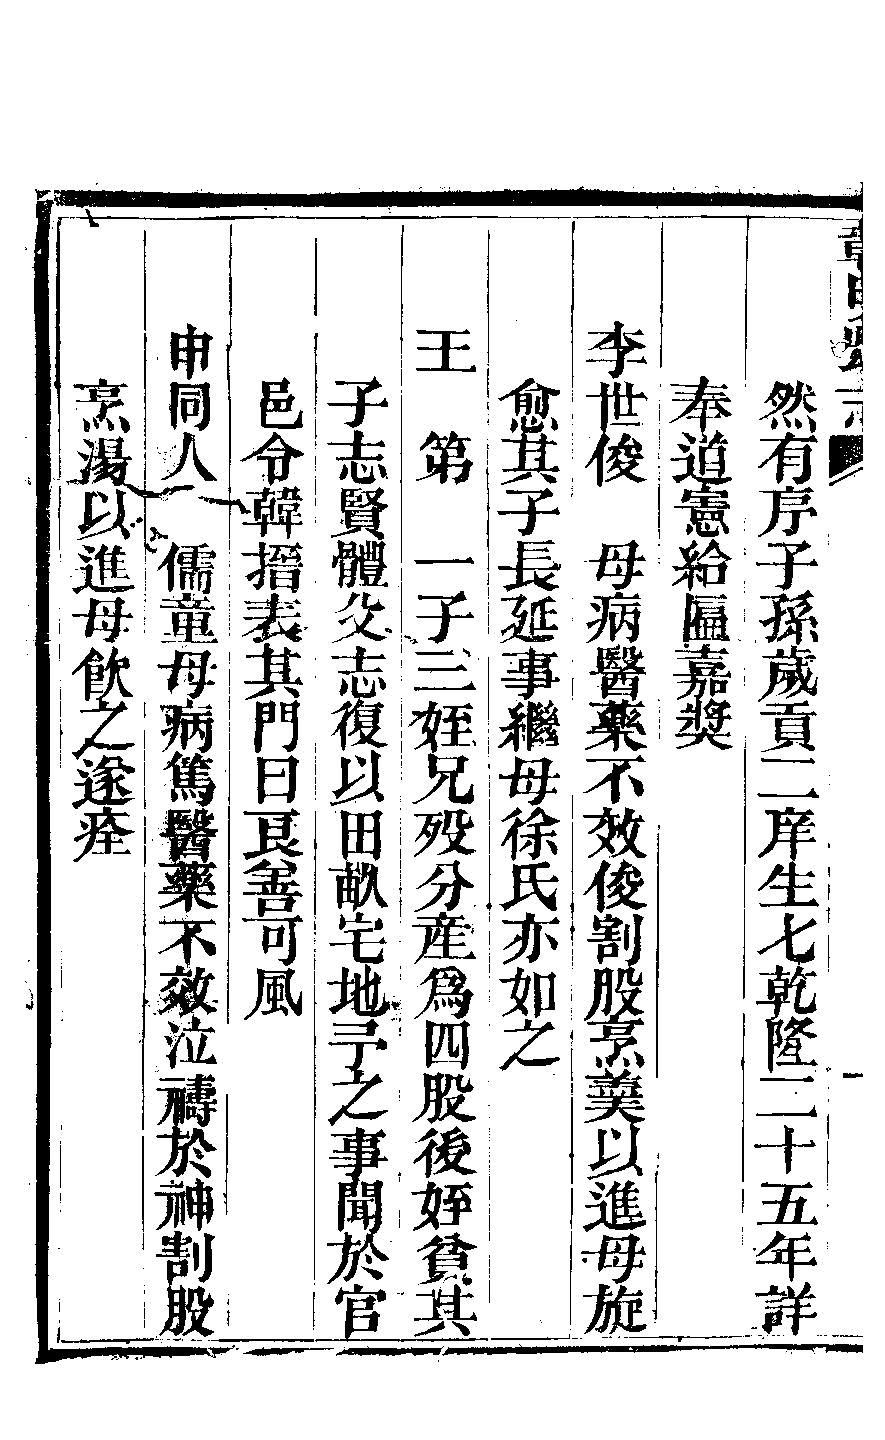 然有序子孫歲貢二庠生七乾隆二十五年詳
奉道憲給匾嘉奬
李世俊　母病醫藥不效俊割股烹羹以進母旋
愈其子長延事繼母徐氏亦如之
王　第　一子三姪兄歿分産爲四股後姪貧其
子志賢體父志復以田畝宅地予之事聞於官
邑令韓搢表其門曰良善可風
申同人　儒童母病篤醫藥不效泣禱於神割股
烹湯以進母飮之遂痊